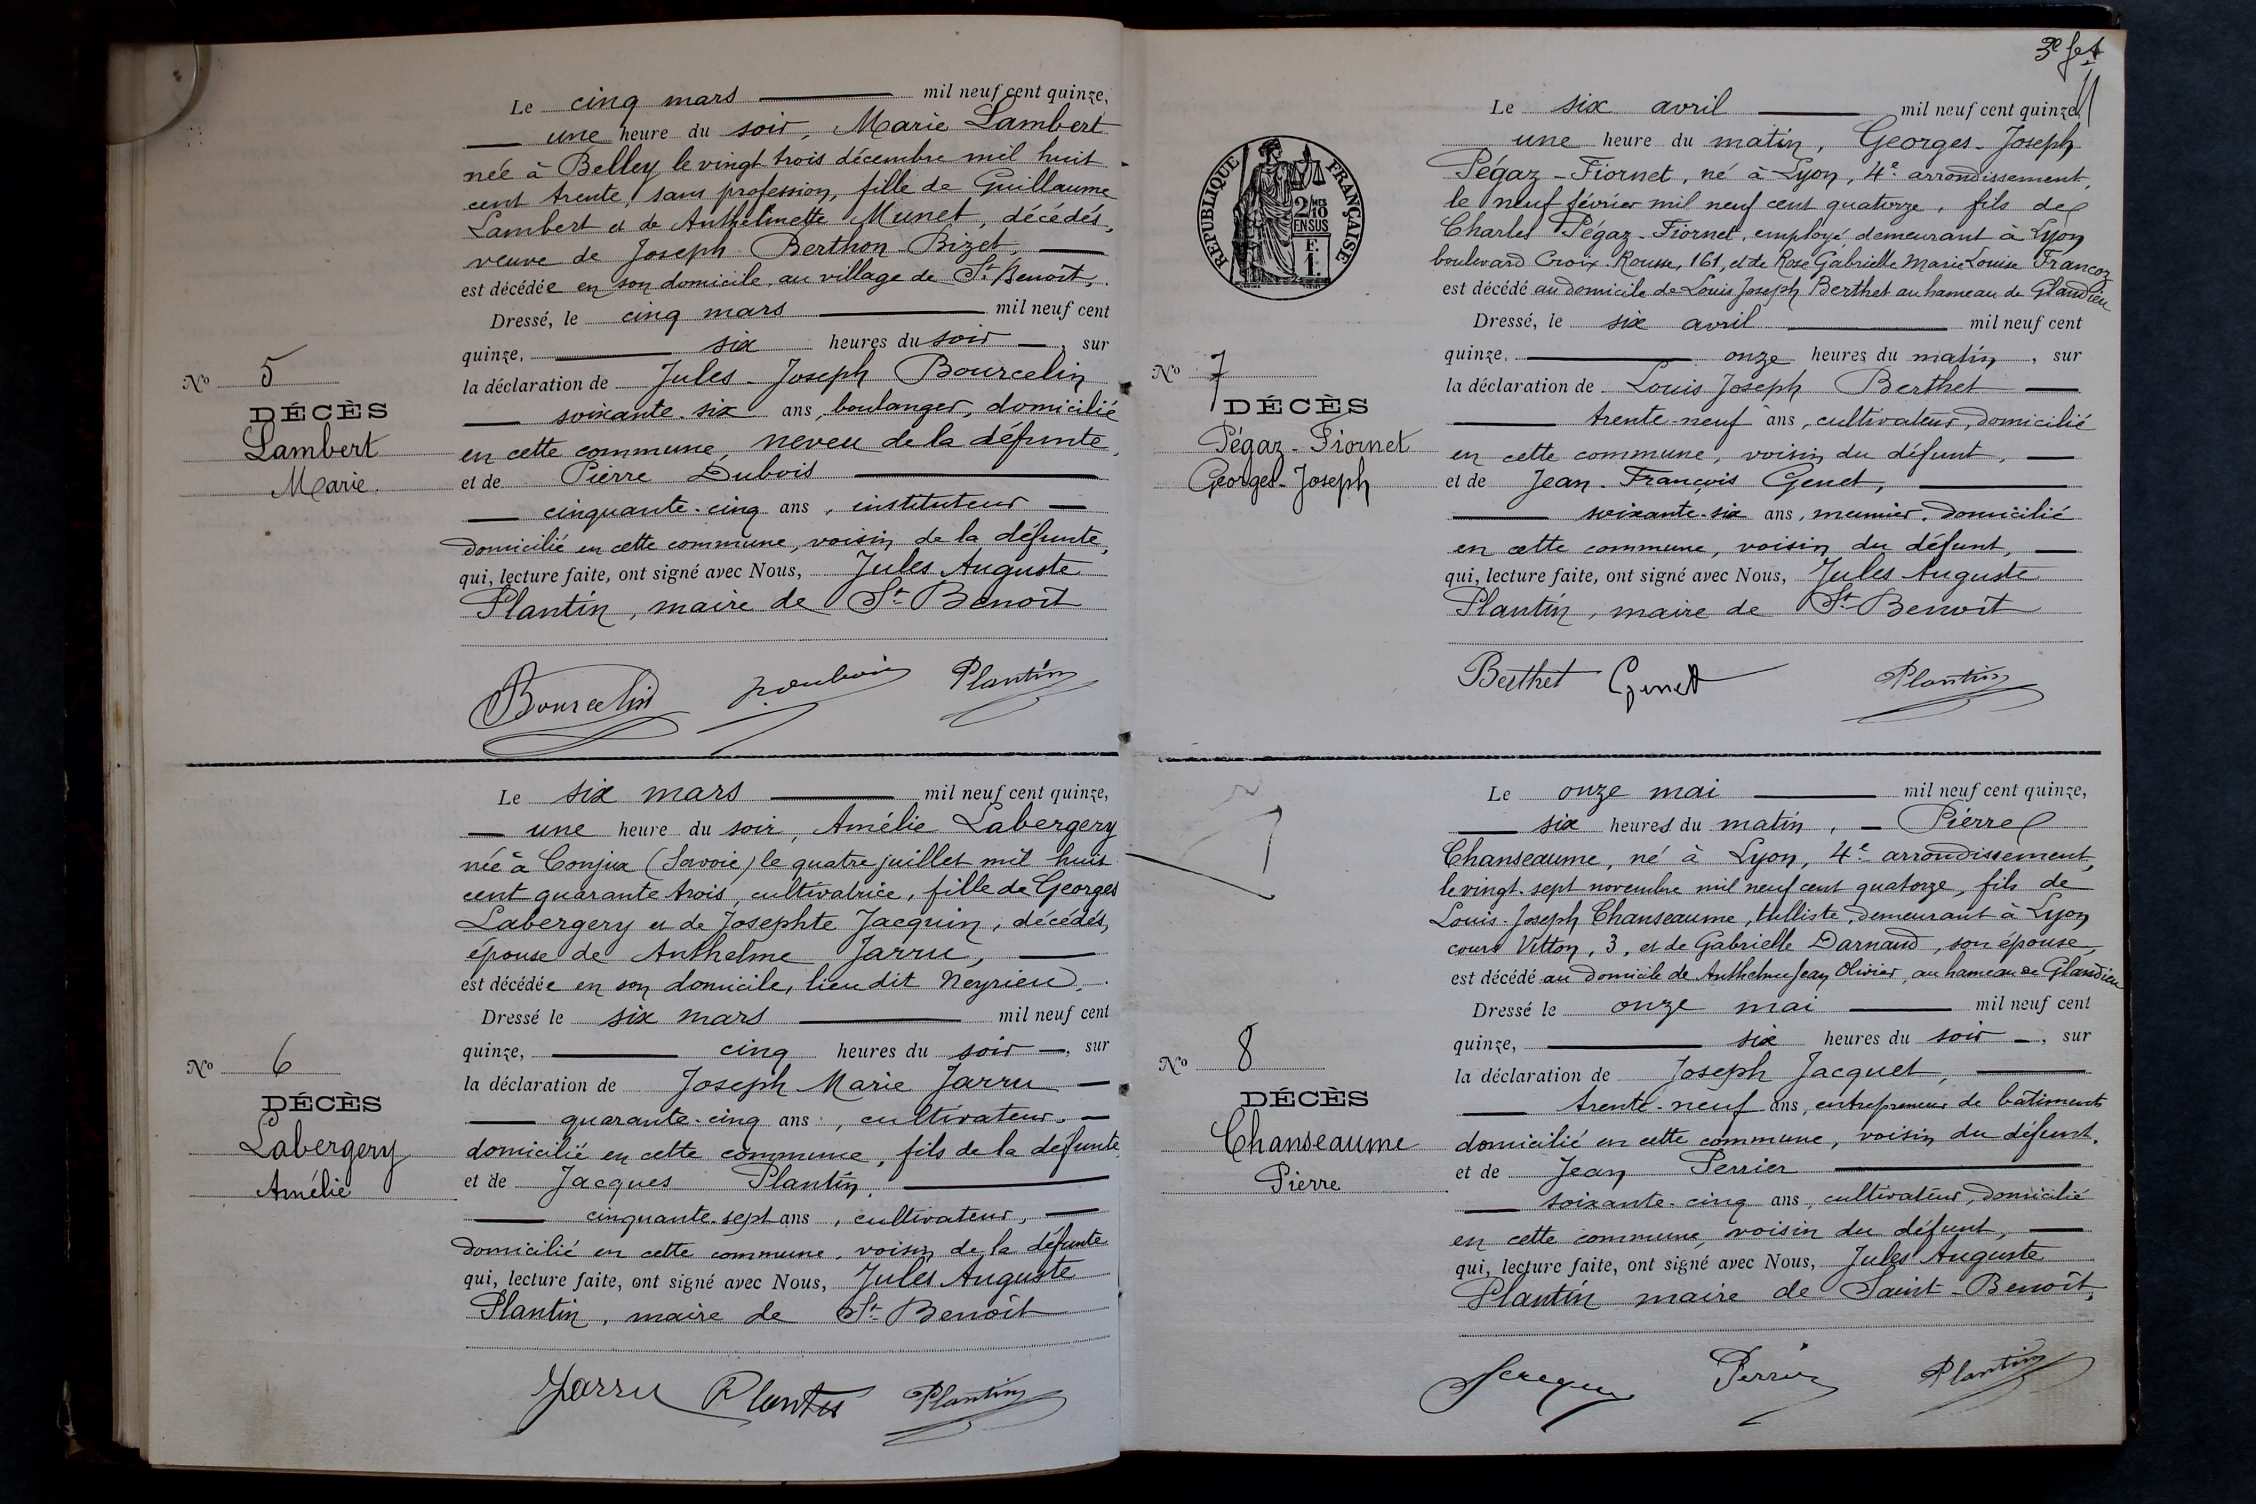 Le cinq mars mil neuf cent quinze,
une heure du soir, Marie Lambert
née à Belley le vingt trois décembre mil huit
cent trente, sans profession, fille de Guillaume
Lambert et de Anthelmette Munet, décédés,
veuve de Joseph Berthon Bizet,
est décédée en son domicile, au village de St Benoît,
Dressé, le cinq mars mil neuf cent
quinze, six heures du soir, sur
la déclaration de Jules-Joseph Bourcelin
soixante-six ans, boulanger, domicilié
en cette commune, neveu de la défunte,
et de Pierre Dubois
cinquante-cinq ans, instituteur
domicilié en cette commune, voisin de la défunte,
qui, lecture faite, ont signé avec Nous, Jules Auguste
Plantin, maire de St Benoît
No 5
DÉCÈS
Lambert
Marie.
Bourcelin Plantin
Le six mars mil neuf cent quinze,
une heure du soir, Amélie Labergery
née à Conjux (Savoie) le quatre juillet mil huit
cent quarante trois, cultivatrice, fille de Georges
Labergery et de Josephte Jacquin, décédés,
épouse de Anthelme Jarru,
est décédée en son domicile, lieu dit Neyrieu.
Dressé le six mars mil neuf cent
quinze, cinq heures du soir, sur
la déclaration de Joseph Marie Jarru
quarante-cinq ans, cultivateur,
domicilié en cette commune, fils de la défunte
et de Jacques Plantin,
cinquante-sept ans, cultivateur,
domicilié en cette commune, voisin de la défunte
qui, lecture faite, ont signé avec Nous, Jules Auguste
Plantin, maire de St Benoît
No 6
DÉCÈS
Labergery
Amélie
Jarru Plantin Plantin
3e fet
RÉPUBLIQUE FRANÇAISE
2/10MES
EN SUS
F.
1.
Le six avril mil neuf cent quinze
une heure du matin, Georges-Joseph
Pégaz-Fiornet, né à Lyon, 4e arrondissement,
le neuf février mil neuf cent quatorze, fils de
Charles Pégaz-Fiornet, employé, demeurant à Lyon
boulevard Croix-Rousse, 161, et de Rose Gabrielle Marie Louise Francoz
est décédé au domicile de Louis Joseph Berthet au hameau de Glandieu
Dressé, le six avril mil neuf cent
quinze, onze heures du matin, sur
la déclaration de Louis Joseph Berthet
trente-neuf ans, cultivateur, domicilié
en cette commune, voisin du défunt,
et de Jean-François Genet,
soixante-six ans, meunier, domicilié
en cette commune, voisin du défunt,
qui, lecture faite, ont signé avec Nous, Jules Auguste
Plantin, maire de St Benoît
No 7
DÉCÈS
Pégaz-Fiornet
Georges-Joseph
Berthet Genet Plantin
Le onze mai mil neuf cent quinze,
six heures du matin, Pierre
Chanseaume, né à Lyon, 4e arrondissement,
le vingt-sept novembre mil neuf cent quatorze, fils de
Louis-Joseph Chanseaume, tulliste, demeurant à Lyon
cours Vitton, 3, et de Gabrielle Darnaud, son épouse,
est décédé au domicile de Anthelme Jean Olivier, au hameau de Glandieu
Dressé le onze mai mil neuf cent
quinze, six heures du soir, sur
la déclaration de Joseph Jacquet,
trente-neuf ans, entrepreneur de bâtiments
domicilié en cette commune, voisin du défunt.
et de Jean Perrier
soixante-cinq ans, cultivateur, domicilié
en cette commune, voisin du défunt,
qui, lecture faite, ont signé avec Nous, Jules Auguste
Plantin maire de Saint-Benoît,
No 8
DÉCÈS
Chanseaume
Pierre
Perrier Plantin